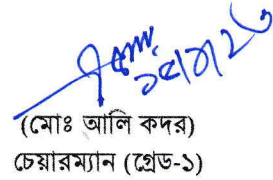 (মোঃ আলি কদর)
চেয়ারম্যান (গ্রেড-১)